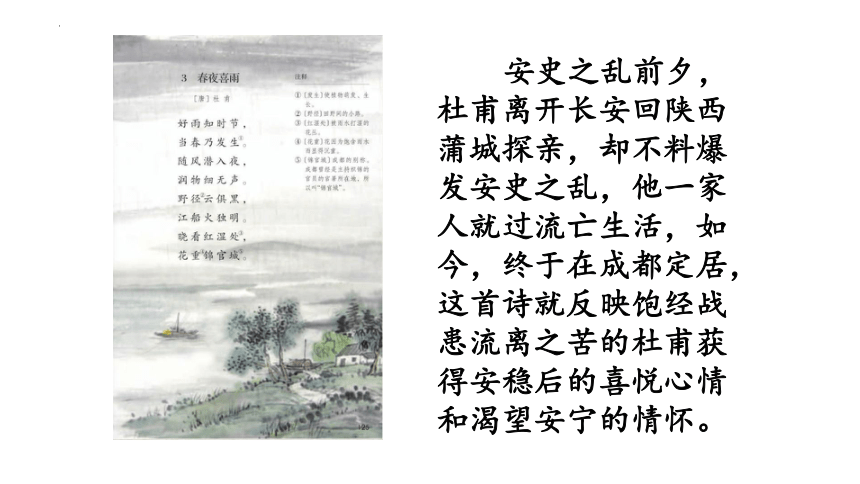 3 春夜喜雨
[唐] 杜 甫
好雨知时节，
当春乃发生①。
随风潜入夜，
润物细无声。
野径②云俱黑，
江船火独明。
晓看红湿处③，
花重④锦官城⑤。
注释
① [发生] 使植物萌发、生
长。
② [野径] 田野间的小路。
③ [红湿处] 被雨水打湿的
花丛。
④ [花重] 花因为饱含雨水
而显得沉重。
⑤ [锦官城] 成都的别称。
成都曾经是主持织锦的
官员的官署所在地，所
以叫“锦官城”。
125
安史之乱前夕，
杜甫离开长安回陕西
蒲城探亲，却不料爆
发安史之乱，他一家
人就过流亡生活，如
今，终于在成都定居，
这首诗就反映饱经战
患流离之苦的杜甫获
得安稳后的喜悦心情
和渴望安宁的情怀。